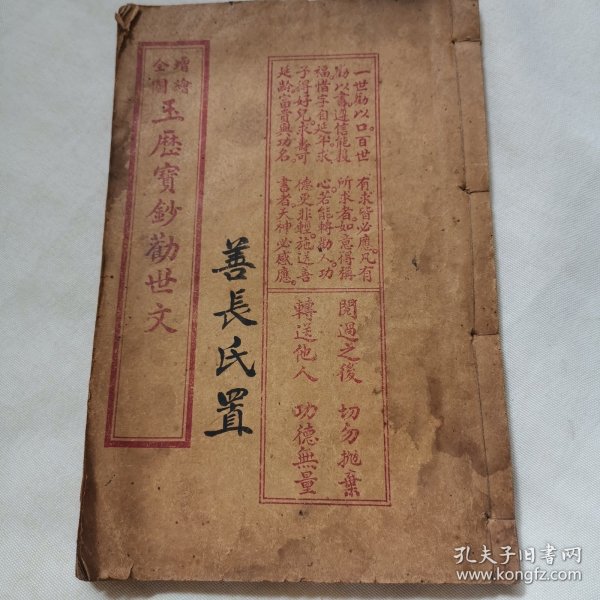 增繪
全圖
玉歷寶鈔勸世文
善長氏置
一世勸以口。百世
勸以書。遵信能獲
福。惜字自延年。求
子得好兒。求壽可
延齡。富貴與功名。
有求皆必應。凡有
所求者。如意得稱
心。若能轉勸人。功
德更非輕。施送善
書者。天神必感應。
閱過之後 切勿拋棄
轉送他人 功德無量
孔夫子旧书网
www.kongfz.com